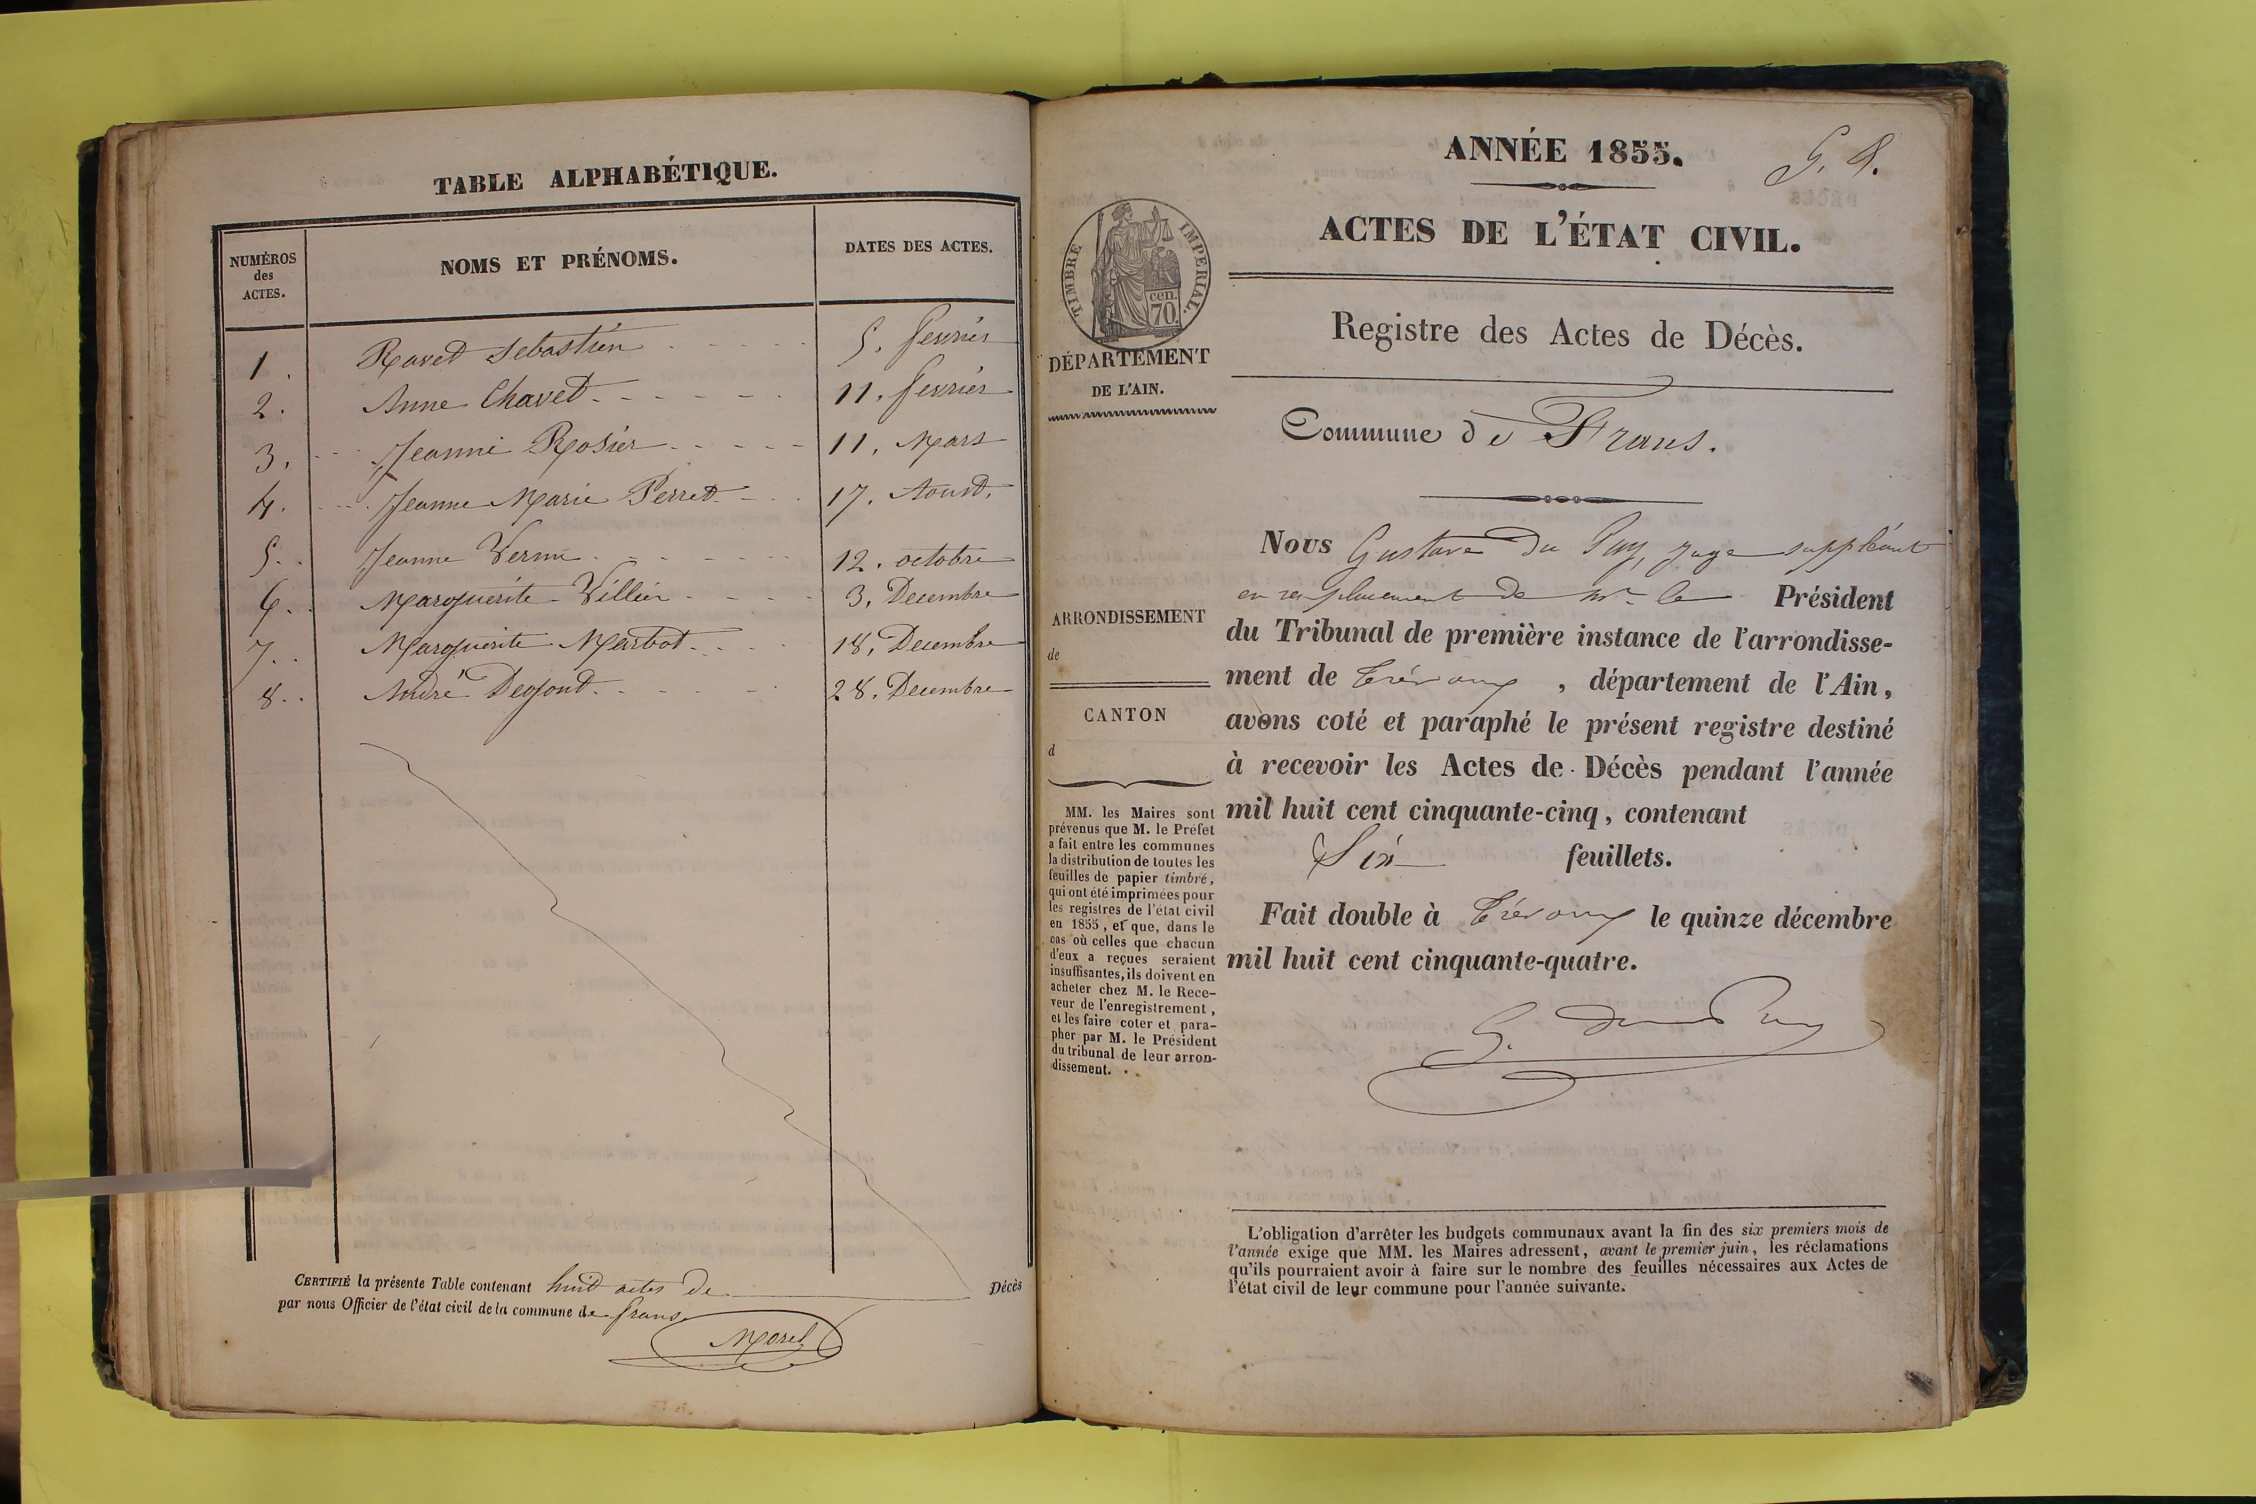 TABLE ALPHABÉTIQUE.
NUMÉROS des ACTES.
NOMS ET PRÉNOMS.
DATES DES ACTES.
1. Ravet Sebastien 5. fevrier
2. Anne Chavet 11. fevrier
3. Jeanne Rosier 11. Mars
4. Jeanne Marie Perret 17. Aoust.
5. Jeanne 12. octobre
6. Marguerite Villier 3. Decembre
7. Marguerite Marbot 18. Decembre
8. André 28. Decembre
CERTIFIÉ la présente Table contenant huit actes de Décès
par nous Officier de l'état civil de la commune de frans.
Morel
ANNÉE 1855.
ACTES DE L'ÉTAT CIVIL.
TIMBRE IMPERIAL.
cen. 70.
DÉPARTEMENT
DE L'AIN.
Registre des Actes de Décès.
Commune de Frans.
ARRONDISSEMENT
de
CANTON
d
MM. les Maires sont
prévenus que M. le Préfet
a fait entre les communes
la distribution de toutes les
feuilles de papier timbré,
qui ont été imprimées pour
les registres de l'état civil
en 1855, et que, dans le
cas où celles que chacun
d'eux a reçues seraient
insuffisantes, ils doivent en
acheter chez M. le Rece-
veur de l'enregistrement,
et les faire coter et para-
pher par M. le Président
du tribunal de leur arron-
dissement.
Nous Gustave du Puy, juge suppléant
en remplacement de Mr le Président
du Tribunal de première instance de l'arrondisse-
ment de Trévoux, département de l'Ain,
avons coté et paraphé le présent registre destiné
à recevoir les Actes de Décès pendant l'année
mil huit cent cinquante-cinq, contenant
Six feuillets.
Fait double à Trévoux le quinze décembre
mil huit cent cinquante-quatre.
L'obligation d'arrêter les budgets communaux avant la fin des six premiers mois de
l'année exige que MM. les Maires adressent, avant le premier juin, les réclamations
qu'ils pourraient avoir à faire sur le nombre des feuilles nécessaires aux Actes de
l'état civil de leur commune pour l'année suivante.